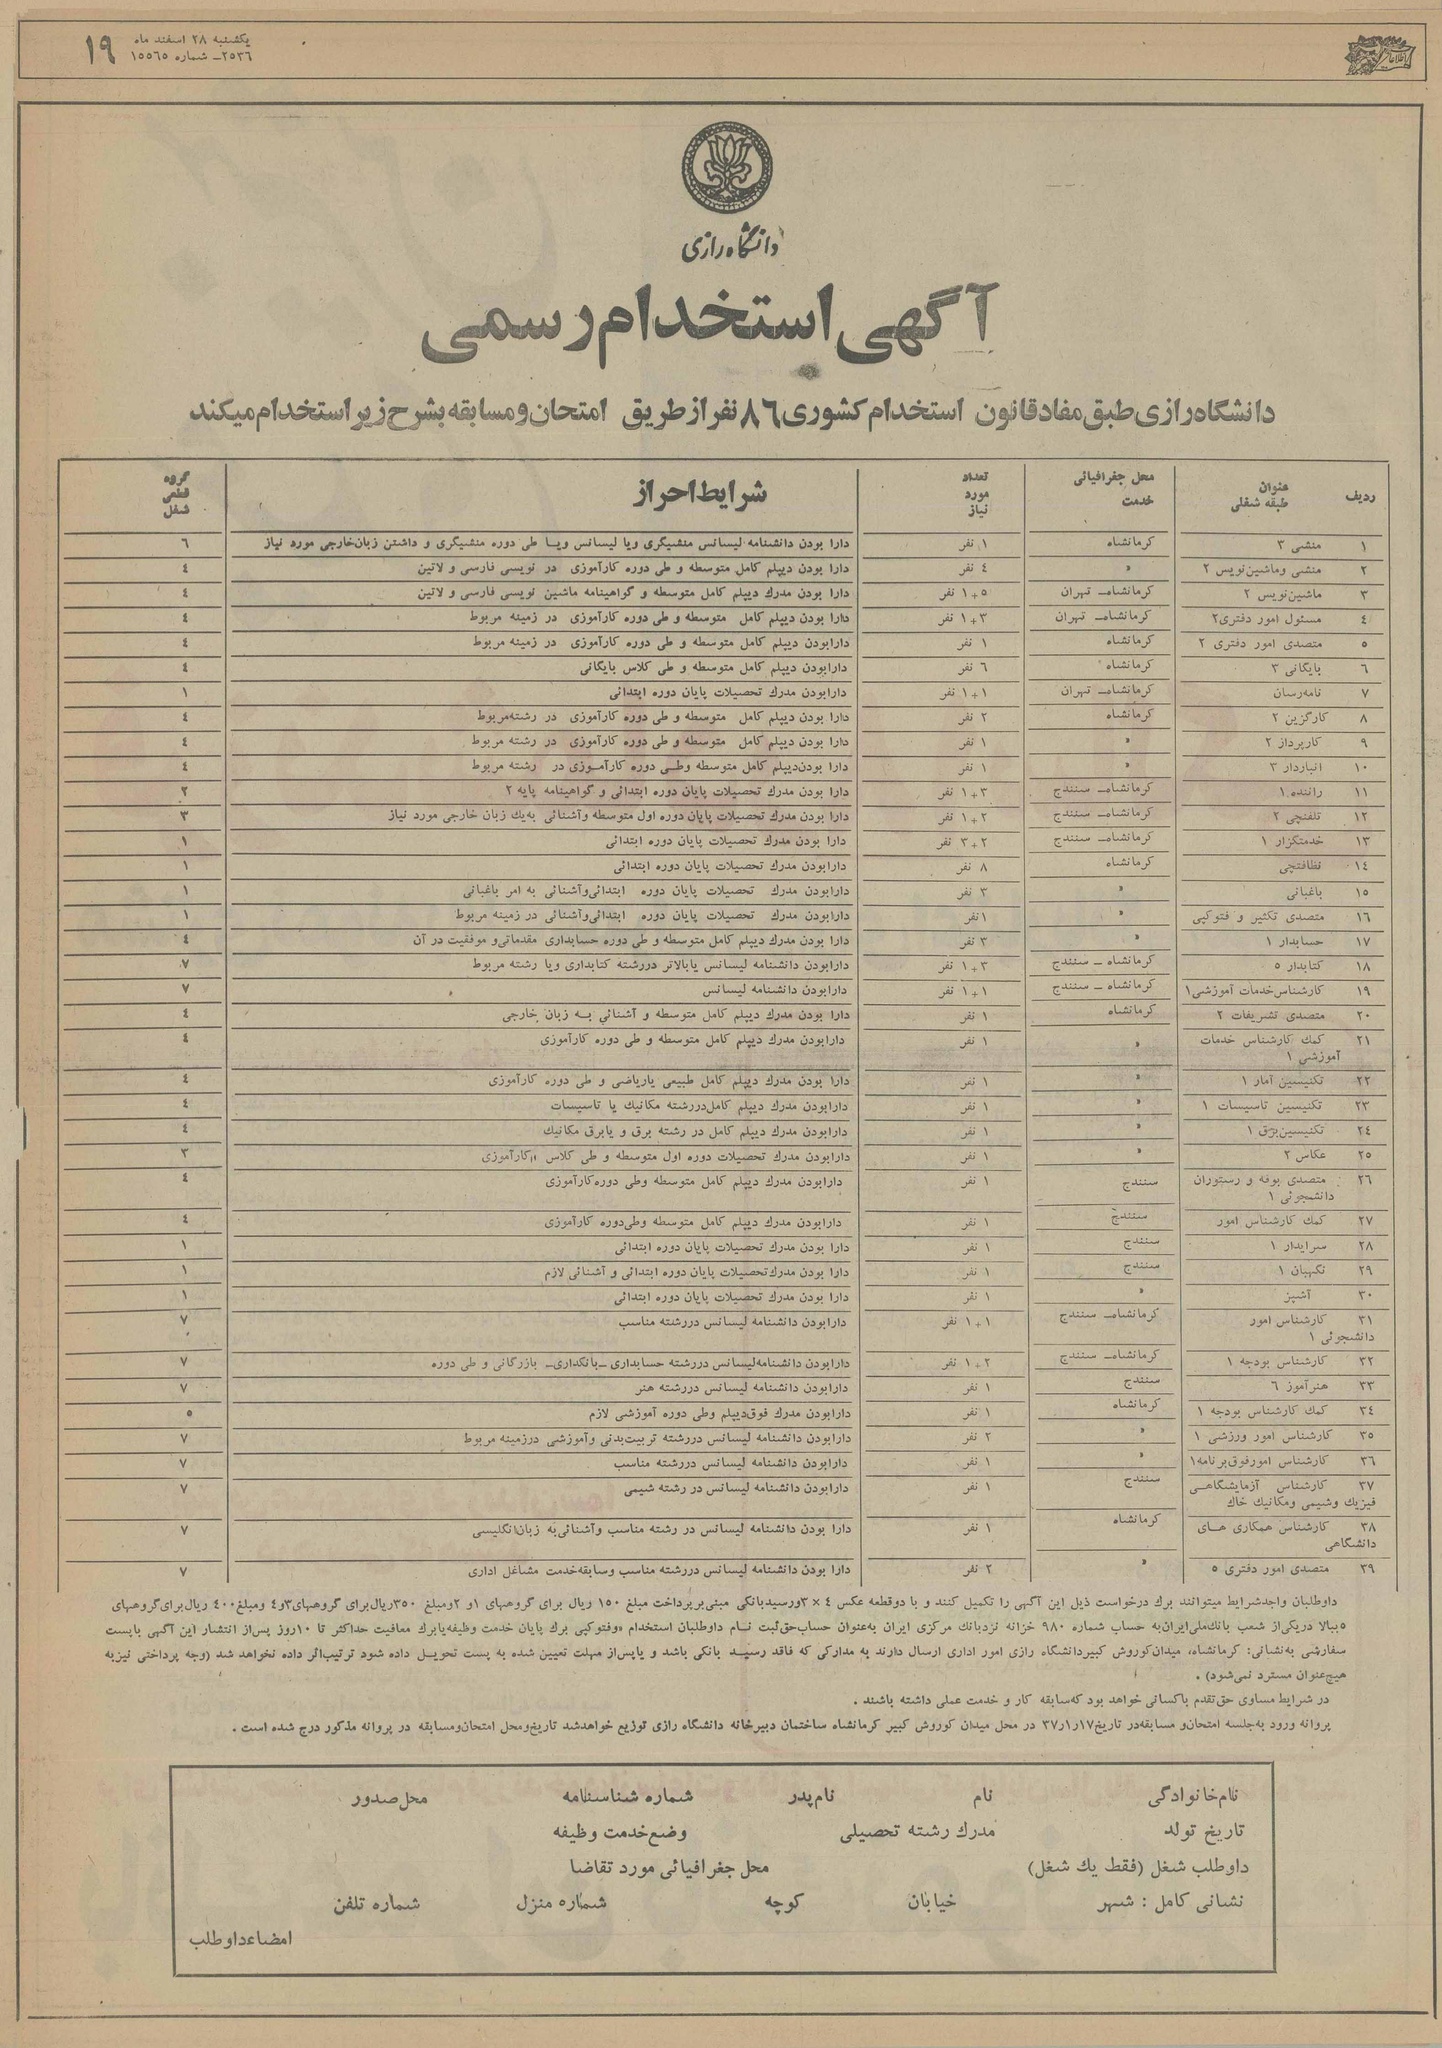 یکشنبه ۲۸ اسفند ماه
۲۵۳۶ـ شماره ۱۵۵۶۵
۱۹
اطلاعات
دانشگاه رازی
آگهی استخدام رسمی
دانشگاه رازی طبق مفاد قانون استخدام کشوری ۸۶ نفر از طریق امتحان و مسابقه بشرح زیر استخدام میکند
ردیف عنوان طبقه شغلی محل جغرافیائی خدمت تعداد مورد نیاز شرایط احراز گروه قطعی شغل
۱ منشی ۳ کرمانشاه ۱ نفر دارا بودن دانشنامه لیسانس منشیگری ویا لیسانس ویا طی دوره منشیگری و داشتن زبان خارجی مورد نیاز ۶
۲ منشی وماشین نویس ۲ » ۴ نفر دارا بودن دیپلم کامل متوسطه و طی دوره کارآموزی در نویسی فارسی و لاتین ۴
۳ ماشین نویس ۲ کرمانشاه‌ـ تهران ۵+۱ نفر دارا بودن مدرك دیپلم کامل متوسطه و گواهینامه ماشین نویسی فارسی و لاتین ۴
۴ مسئول امور دفتری۲ کرمانشاه‌ـ تهران ۳+۱ نفر دارا بودن دیپلم کامل متوسطه و طی دوره کارآموزی در زمینه مربوط ۴
۵ متصدی امور دفتری ۲ کرمانشاه ۱ نفر دارابودن دیپلم کامل متوسطه و طی دوره کارآموزی در زمینه مربوط ۴
۶ بایگانی ۳ کرمانشاه ۶ نفر دارابودن دیپلم کامل متوسطه و طی کلاس بایگانی ۴
۷ نامه‌رسان کرمانشاه‌ـ تهران ۱+۱ نفر دارابودن مدرك تحصیلات پایان دوره ابتدائی ۱
۸ کارگزین ۲ کرمانشاه ۲ نفر دارا بودن دیپلم کامل متوسطه و طی دوره کارآموزی در رشته مربوط ۴
۹ کارپرداز ۲ » ۱ نفر دارا بودن دیپلم کامل متوسطه و طی دوره کارآموزی در رشته مربوط ۴
۱۰ انباردار ۳ » ۱ نفر دارا بودن دیپلم کامل متوسطه وطی دوره کارآموزی در رشته مربوط ۴
۱۱ راننده ۱ کرمانشاه‌ـ سنندج ۳+۱ نفر دارا بودن مدرك تحصیلات پایان دوره ابتدائی و گواهینامه پایه ۲ ۲
۱۲ تلفنچی ۲ کرمانشاه‌ـ سنندج ۲+۱ نفر دارا بودن مدرك تحصیلات پایان دوره اول متوسطه وآشنائی به‌یك زبان خارجی مورد نیاز ۳
۱۳ خدمتگزار ۱ کرمانشاه‌ـ سنندج ۲+۳ نفر دارا بودن مدرك تحصیلات پایان دوره ابتدائی ۱
۱۴ نظافتچی کرمانشاه ۸ نفر دارابودن مدرك تحصیلات پایان دوره ابتدائی ۱
۱۵ باغبانی » ۳ نفر دارابودن مدرك تحصیلات پایان دوره ابتدائی وآشنائی به امر باغبانی ۱
۱۶ متصدی تکثیر و فتوکپی » ۱نفر دارابودن مدرك تحصیلات پایان دوره ابتدائی وآشنائی در زمینه مربوط ۱
۱۷ حسابدار ۱ » ۳ نفر دارا بودن مدرك دیپلم کامل متوسطه و طی دوره حسابداری مقدماتی و موفقیت در آن ۴
۱۸ کتابدار ۵ کرمانشاه ـ سنندج ۳+۱ نفر دارابودن دانشنامه لیسانس یابالاتر دررشته کتابداری ویا رشته مربوط ۷
۱۹ کارشناس خدمات آموزشی۱ کرمانشاه ـ سنندج ۱+۱ نفر دارابودن دانشنامه لیسانس ۷
۲۰ متصدی تشریفات ۲ کرمانشاه ۱ نفر دارا بودن مدرك دیپلم کامل متوسطه و آشنائی به زبان خارجی ۴
۲۱ کمك کارشناس خدمات آموزشی ۱ » ۱ نفر دارابودن مدرك دیپلم کامل متوسطه و طی دوره کارآموزی ۴
۲۲ تکنیسین آمار ۱ » ۱ نفر دارا بودن مدرك دیپلم کامل طبیعی یاریاضی و طی دوره کارآموزی ۴
۲۳ تکنیسین تاسیسات ۱ » ۱ نفر دارابودن مدرك دیپلم کامل دررشته مکانیك یا تاسیسات ۴
۲۴ تکنیسین برق ۱ » ۱ نفر دارابودن مدرك دیپلم کامل در رشته برق و یابرق مکانیك ۴
۲۵ عکاس ۲ » ۱ نفر دارابودن مدرك تحصیلات دوره اول متوسطه و طی کلاس کارآموزی ۳
۲۶ متصدی بوفه و رستوران دانشجوئی ۱ سنندج ۱ نفر دارابودن مدرك دیپلم کامل متوسطه وطی دوره کارآموزی ۴
۲۷ کمك کارشناس امور سنندج ۱ نفر دارابودن مدرك دیپلم کامل متوسطه وطی دوره کارآموزی ۴
۲۸ سرایدار ۱ سنندج ۱ نفر دارا بودن مدرك تحصیلات پایان دوره ابتدائی ۱
۲۹ نگهبان ۱ سنندج ۱ نفر دارا بودن مدرك تحصیلات پایان دوره ابتدائی و آشنائی لازم ۱
۳۰ آشپز » ۱ نفر دارا بودن مدرك تحصیلات پایان دوره ابتدائی ۱
۳۱ کارشناس امور دانشجوئی ۱ کرمانشاه‌ـ سنندج ۱+۱ نفر دارابودن دانشنامه لیسانس دررشته مناسب ۷
۳۲ کارشناس بودجه ۱ کرمانشاه‌ـ سنندج ۲+۱ نفر دارابودن دانشنامه لیسانس دررشته حسابداری ـبانکداری‌ـ بازرگانی و طی دوره ۷
۳۳ هنرآموز ۶ سنندج ۱ نفر دارابودن دانشنامه لیسانس دررشته هنر ۷
۳۴ کمك کارشناس بودجه ۱ کرمانشاه ۱ نفر دارابودن مدرك فوق دیپلم وطی دوره آموزشی لازم ۵
۳۵ کارشناس امور ورزشی ۱ » ۲ نفر دارابودن دانشنامه لیسانس دررشته تربیت بدنی وآموزشی درزمینه مربوط ۷
۳۶ کارشناس امورفوق برنامه۱ » ۱ نفر دارابودن دانشنامه لیسانس دررشته مناسب ۷
۳۷ کارشناس آزمایشگاهی فیزیك وشیمی ومکانیك خاك سنندج ۱ نفر دارابودن دانشنامه لیسانس در رشته شیمی ۷
۳۸ کارشناس همکاری های دانشگاهی کرمانشاه ۱ نفر دارا بودن دانشنامه لیسانس در رشته مناسب وآشنائی به زبان انگلیسی ۷
۳۹ متصدی امور دفتری ۵ » ۲ نفر دارا بودن دانشنامه لیسانس دررشته مناسب وسابقه خدمت مشاغل اداری ۷
داوطلبان واجدشرایط میتوانند برك درخواست ذیل این آگهی را تکمیل کنند و با دوقطعه عکس ۴ × ۳ورسیدبانکی مبنی برپرداخت مبلغ ۱۵۰ ریال برای گروههای ۱و ۲ومبلغ ۳۵۰ریال برای گروههای ۳و۴ ومبلغ ۴۰۰ ریال برای گروههای
۵ببالا دریکی از شعب بانك ملی ایران به حساب شماره ۹۸۰ خزانه نزدبانك مرکزی ایران به‌عنوان حساب حق ثبت نام داوطلبان استخدام «وفتوکپی برك پایان خدمت وظیفه یابرك معافیت حداکثر تا ۱۰روز پس از انتشار این آگهی بابست
سفارشی به‌نشانی: کرمانشاه، میدان کوروش کبیردانشگاه رازی امور اداری ارسال دارند به مدارکی که فاقد رسید بانکی باشد و یاپس از مهلت تعیین شده به پست تحویل داده شود ترتیب‌اثر داده نخواهد شد (وجه پرداختی نیز به
هیچ عنوان مسترد نمی‌شود) .
در شرایط مساوی حق تقدم باکسانی خواهد بود که سابقه کار و خدمت عملی داشته باشند .
پروانه ورود به‌جلسه امتحان و مسابقه در تاریخ ۳۷ر۱ر۱۷ در محل میدان کوروش کبیر کرمانشاه ساختمان دبیرخانه دانشگاه رازی توزیع خواهدشد تاریخ‌ومحل امتحان‌ومسابقه در پروانه مذکور درج شده است .
نام‌خانوادگی نام نام‌پدر شماره شناسنامه محل صدور
تاریخ تولد مدرك رشته تحصیلی وضع خدمت وظیفه
داوطلب شغل (فقط یك شغل) محل جغرافیائی مورد تقاضا
نشانی کامل : شهر خیابان کوچه شماره منزل شماره تلفن
امضاءداوطلب